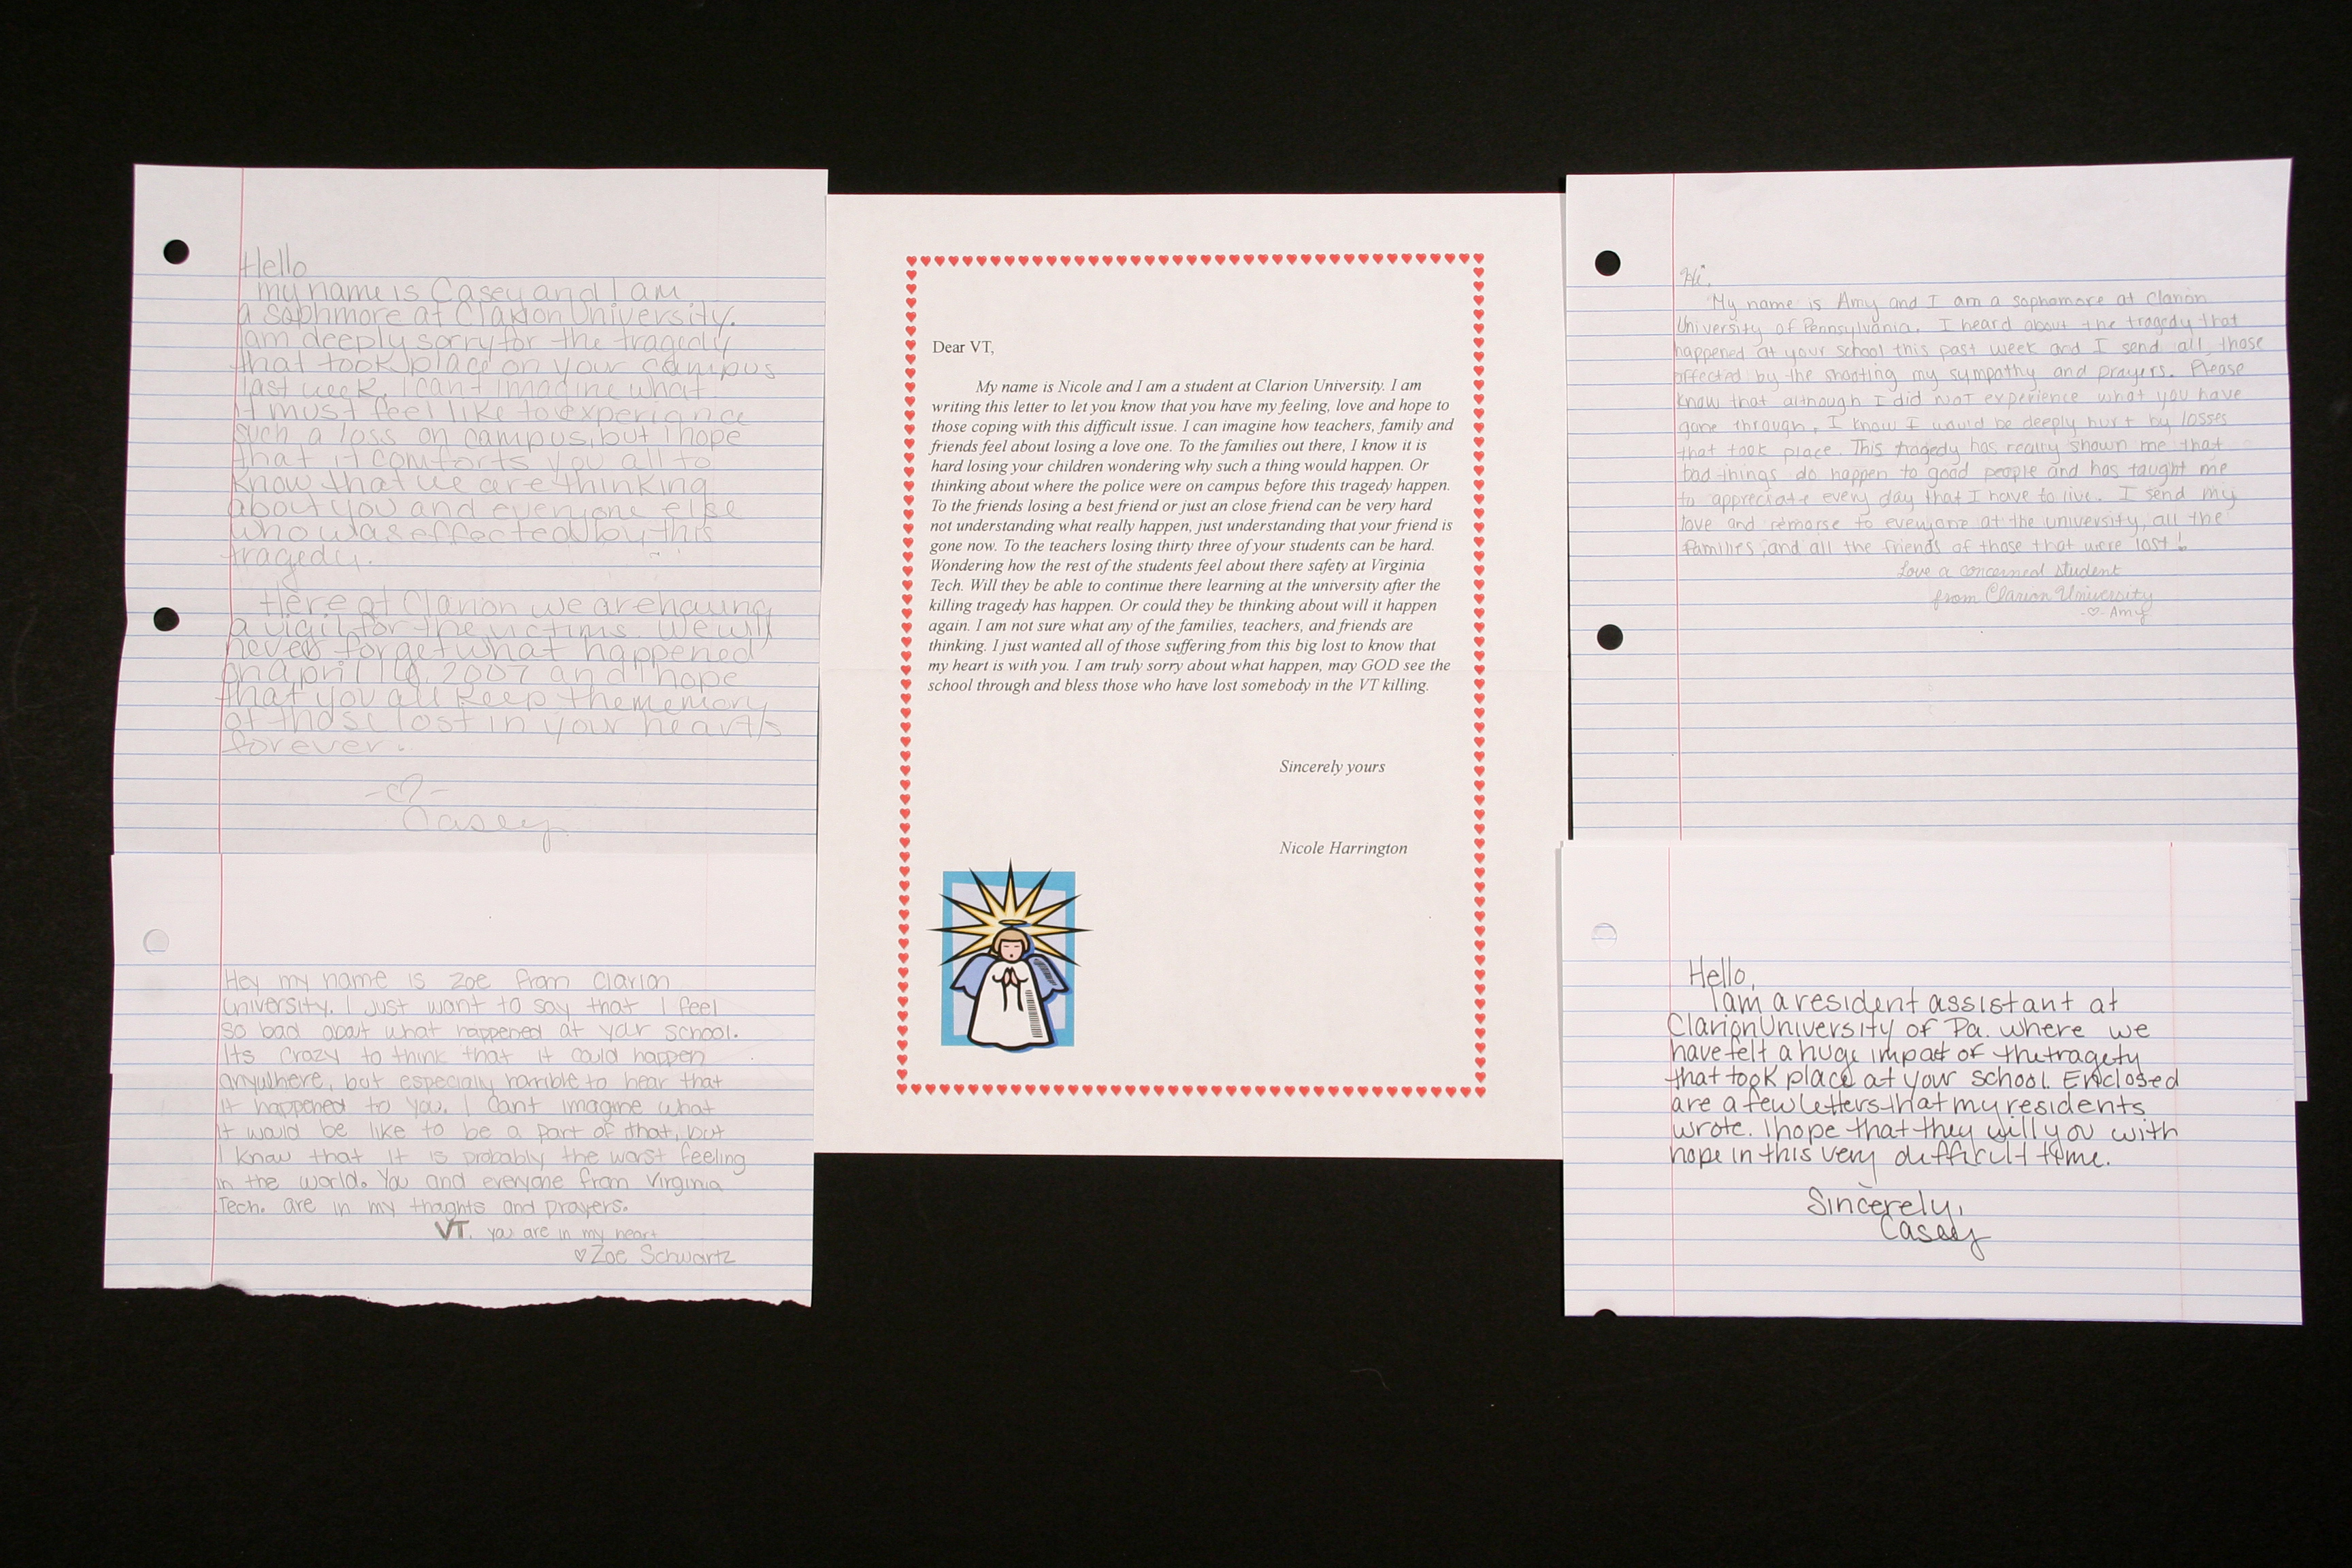 Hello
my name is Casey and I am
a sophmore at Clarion University.
I am deeply sorry for the tragedy
that took place on your campus
last week. I cant imagine what
it must feel like to experiance
such a loss on campus, but I hope
that it comforts you all to
know that we are thinking
about you and everyone else
who was effected by this
tragedy.
Here at Clarion we are having
a vigil for the victims. We will
never forget what happened
on april 16, 2007 and I hope
that you all keep the memory
of those lost in your hearts
forever.
Casey
Hey my name is Zoe from Clarion
University. I just want to say that I feel
so bad about what happened at your school.
Its crazy to think that it could happen
anywhere, but especially horrible to hear that
it happened to you. I cant imagine what
it would be like to be a part of that, but
I know that it is probably the worst feeling
in the world. You and everyone from Virginia
Tech. are in my thoughts and prayers.
VT. you are in my heart
♡ Zoe Schwartz
Dear VT,
My name is Nicole and I am a student at Clarion University. I am
writing this letter to let you know that you have my feeling, love and hope to
those coping with this difficult issue. I can imagine how teachers, family and
friends feel about losing a love one. To the families out there, I know it is
hard losing your children wondering why such a thing would happen. Or
thinking about where the police were on campus before this tragedy happen.
To the friends losing a best friend or just an close friend can be very hard
not understanding what really happen, just understanding that your friend is
gone now. To the teachers losing thirty three of your students can be hard.
Wondering how the rest of the students feel about there safety at Virginia
Tech. Will they be able to continue there learning at the university after the
killing tragedy has happen. Or could they be thinking about will it happen
again. I am not sure what any of the families, teachers, and friends are
thinking. I just wanted all of those suffering from this big lost to know that
my heart is with you. I am truly sorry about what happen, may GOD see the
school through and bless those who have lost somebody in the VT killing.
Sincerely yours
Nicole Harrington
"Hi",
My name is Amy and I am a sophamore at Clarion
University of Pennsylvania. I heard about the tragedy that
happened at your school this past week and I send all those
affected by the shooting my sympathy and prayers. Please
know that although I did NOT experience what you have
gone through, I know I would be deeply hurt by losses
that took place. This tragedy has really shown me that
bad things do happen to good people and has taught me
to appreciate every day that I have to live. I send my
love and remorse to everyone at the university, all the
families, and all the friends of those that were lost!
Love a concerned student
from Clarion University
-♡- Amy
Hello,
I am a resident assistant at
Clarion University of Pa. where we
have felt a huge impact of the tragety
that took place at your school. Enclosed
are a few letters that my residents
wrote. I hope that they will you with
hope in this very difficult time.
Sincerely,
Casey